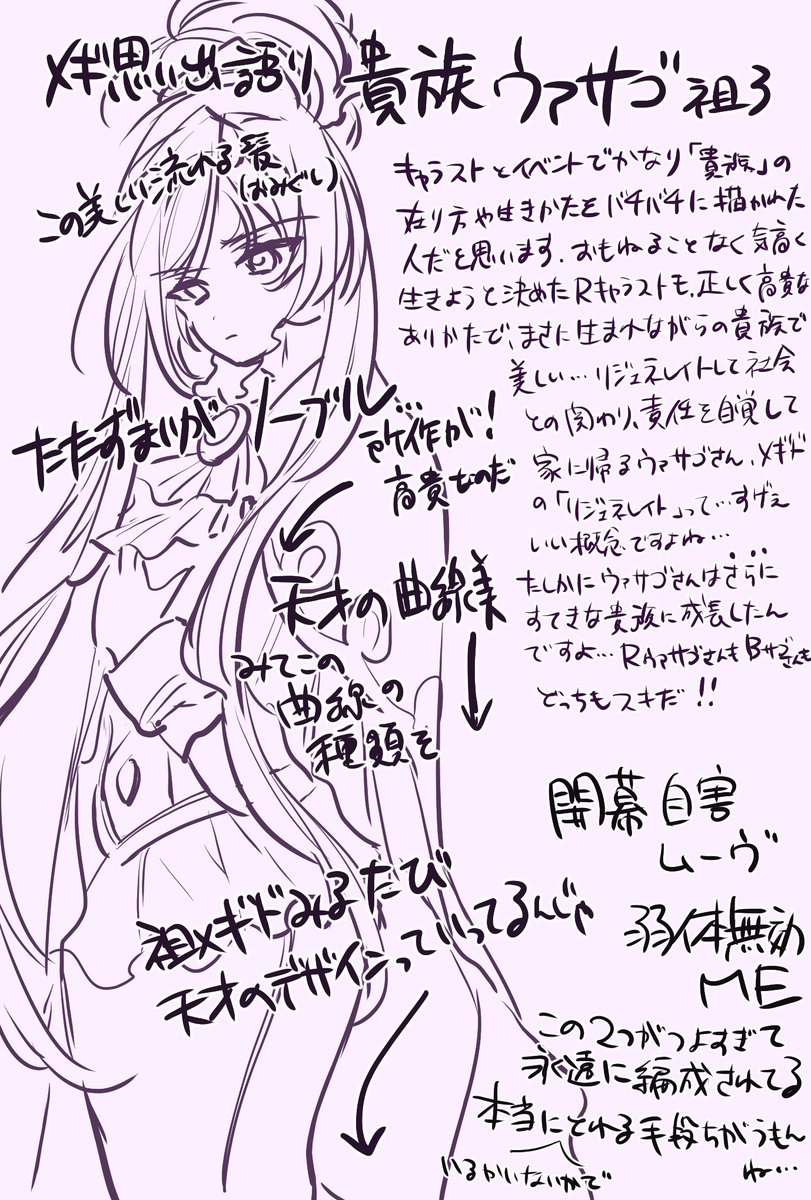 メギド思い出語り 貴族ウァサゴ 祖3
この美しい流れる髪
(おみぐし)
キャラストとイベントでかなり「貴族」の
在り方や生きかたをバチバチに描かれた
人だと思います。おもねることなく気高く
生きようと決めたRキャラストも、正しく高貴な
ありかたで、まさに生まれながらの貴族で
美しい…リジェネレイトして社会
との関わり、責任を自覚して
家に帰るウァサゴさん、メギド
の「リジェネレイト」って…すげぇ
いい概念ですよね…
たしかにウァサゴさんはさらに
すてきな貴族に成長したん
ですよ…RウァサゴさんもBサゴさんも
どっちもスキだ!!
たたずまいがノーブル…
所作が!
高貴なのだ
天才の曲線美
みてこの
曲線の
種類を
祖メギドみるたび
天才のデザインっていってるんじゃ
開幕自害
ムーヴ
弱体無効
ME
この2つがつよすぎて
永遠に編成されてる
本当にとれる手段ちがうもん
ね…
いるかいないかで